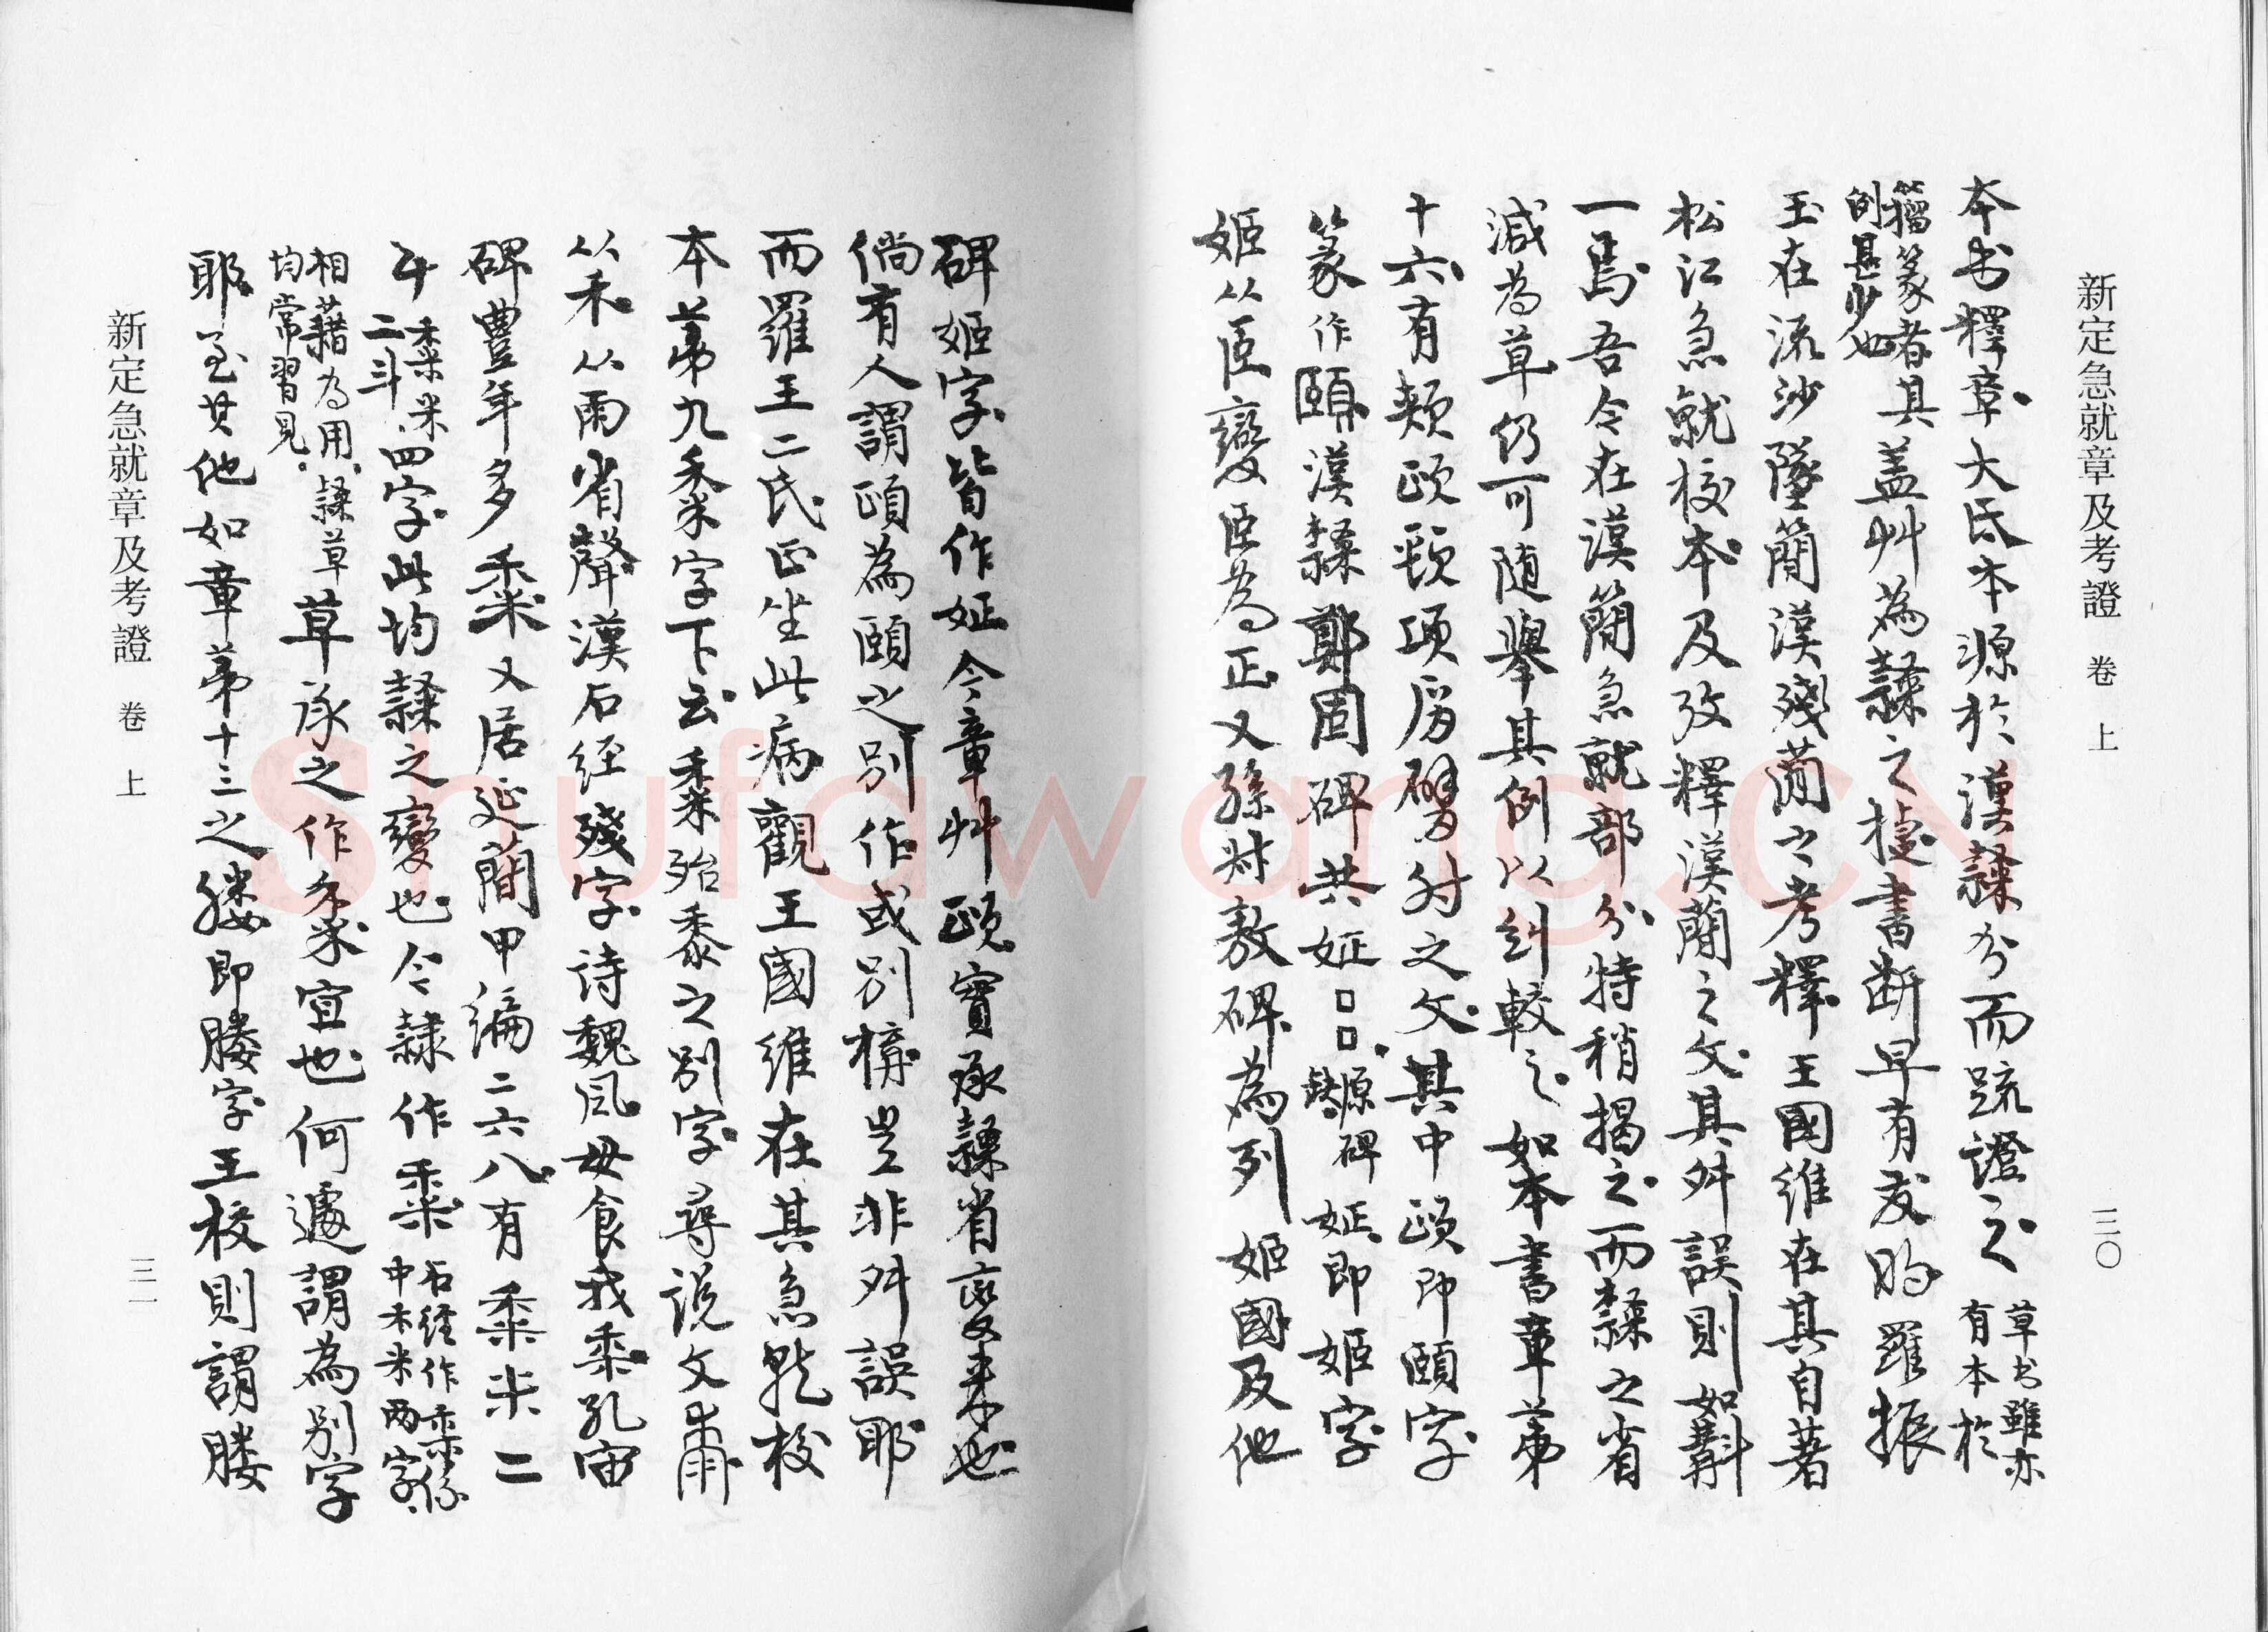 新定急就章及考證 卷上 三〇
本书釋章大氐本源於漢隸分而疏證之草书雖亦有本於
籀篆者其例甚少也蓋艸為隸之捷書斷早有友昀羅振
玉在流沙墜簡漢殘蕳之考釋王國維在其自著
松江急就校本及攷釋漢蕳之文其舛誤則如斠
一焉吾今在漢簡急就部分特稍揭之而隸之省
減為草仍可随舉其例以糾較之如本書章弟
十六有頰頤頸項肩臂肘之文其中頤即頤字
篆作頤漢隸鄭固碑共姃□□隸原碑姃即姬字
姬从𦣝變𦣝為正又孫叔敖碑為列姬國及他
碑姬字皆作姃令章艸頤實承隸省變来也
倘有人謂頤為頤之别作或别構豈非舛誤耶
而羅王二氏正坐此病觀王國維在其急就校
本弟九黍字下云黍殆黍之别字尋説文黍
从禾从雨省聲漢石経殘字詩魏风毋食我黍孔宙
碑豊年多黍又居延蕳甲編二六八有黍米二
斗黍米二斗四字此均隸之變也今隸作黍石經作黍係中禾米兩字
相藉為用隸草均常習見草承之作黍宜也何遽謂為别字
耶至其他如章弟十三之𦝫即膢字王校則謂膢
新定急就章及考證 卷上 三一
Shufawang.CN